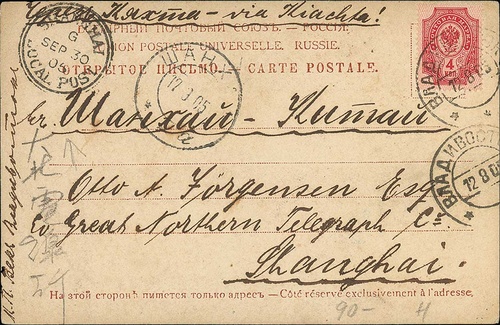 Черезъ Кяхта - via Kiachta!
ВСЕМІРНЫЙ ПОЧТОВЫЙ СОЮЗЪ. — РОССІЯ.
UNION POSTALE UNIVERSELLE. RUSSIE.
ОТКРЫТОЕ ПИСЬМО — CARTE POSTALE.
SHANGHAI
G
SEP 30
05
LOCAL POST
ШАНХ
17 9 05
4
КОП
ВЛАД
12 8 05
ВЛАДИВОСТ
12 8 0
Шанхай - Китай
Otto A. Jörgensen Esq
Co Great Northern Telegraph Co.
Shanghai.
大北電
На этой сторонѣ пишется только адресъ — Côté réservé exclusivement à l'adresse.
90- H